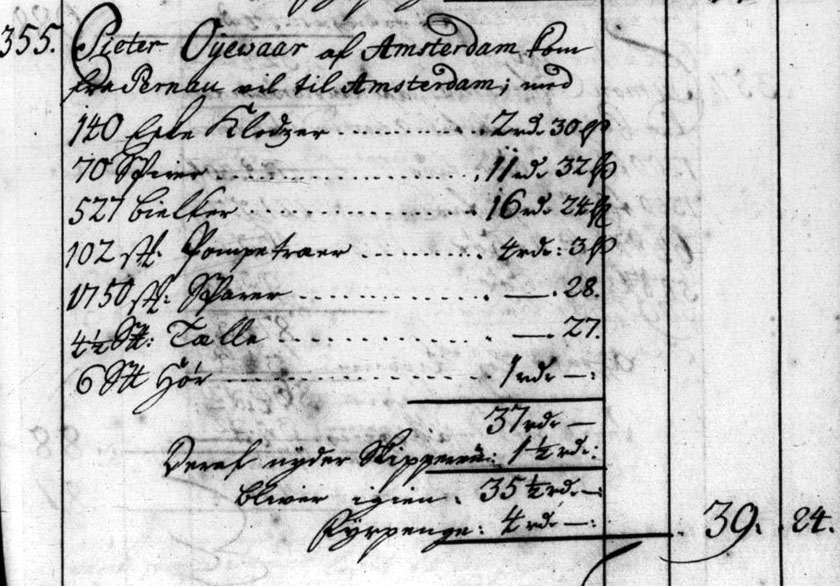 355. Pieter Oyewaar af Amsterdam kom
fra Pernau vil til Amsterdam, med
140 Klodzer 2 rd. 30 ß
70 11 rd. 32 ß
527 bielker 16 rd. 24 ß
102 st. Pompetraer 4 rd: 3 ß
1750 st: — . 28.
4½ St: Talle — 27.
6 Hör 1 rd. —:
37 rd. —
Deraf nÿder Skipperen: 1½ rd:
bliver igien. 35½ rd. —:
Fÿrpenge: 4 rd. —: 39. 24.